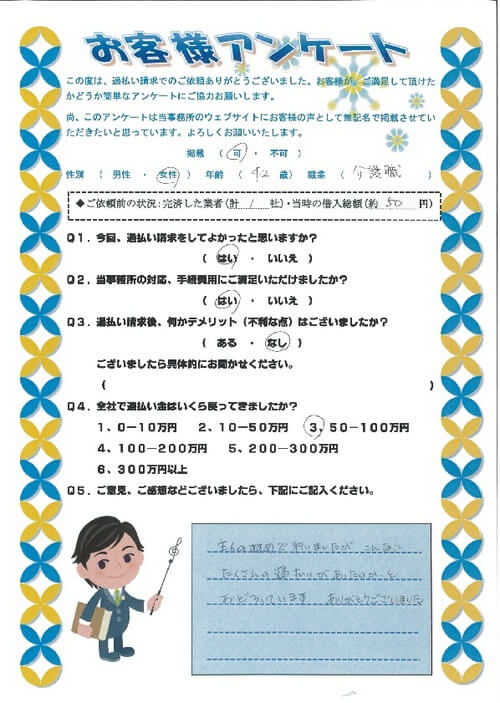 お客様アンケート
この度は、過払い請求でのご依頼ありがとうございました。お客様が、ご満足して頂けた
かどうか簡単なアンケートにご協力お願いします。
尚、このアンケートは当事務所のウェブサイトにお客様の声として無記名で掲載させてい
ただきたいと思っています。よろしくお願いいたします。
掲載 ( 可 ・ 不可 )
性別 ( 男性 ・ 女性 ) 年齢 ( 42 歳) 職業 ( 介護職 )
◆ご依頼前の状況:完済した業者(計 1 社)・当時の借入総額(約 50 円)
Q1.今回、過払い請求をしてよかったと思いますか?
( はい ・ いいえ )
Q2.当事務所の対応、手続費用にご満足いただけましたか?
( はい ・ いいえ )
Q3.過払い請求後、何かデメリット(不利な点)はございましたか?
( ある ・ なし )
ございましたら具体的にお聞かせください。
( )
Q4.全社で過払い金はいくら戻ってきましたか?
1、0−10万円 2、10−50万円 3、50−100万円
4、100−200万円 5、200−300万円
6、300万円以上
Q5.ご意見、ご感想などございましたら、下記にご記入ください。
で行いましたが こんなに
たくさんの過払いがあったのかと
おどろいています ありがとうございました